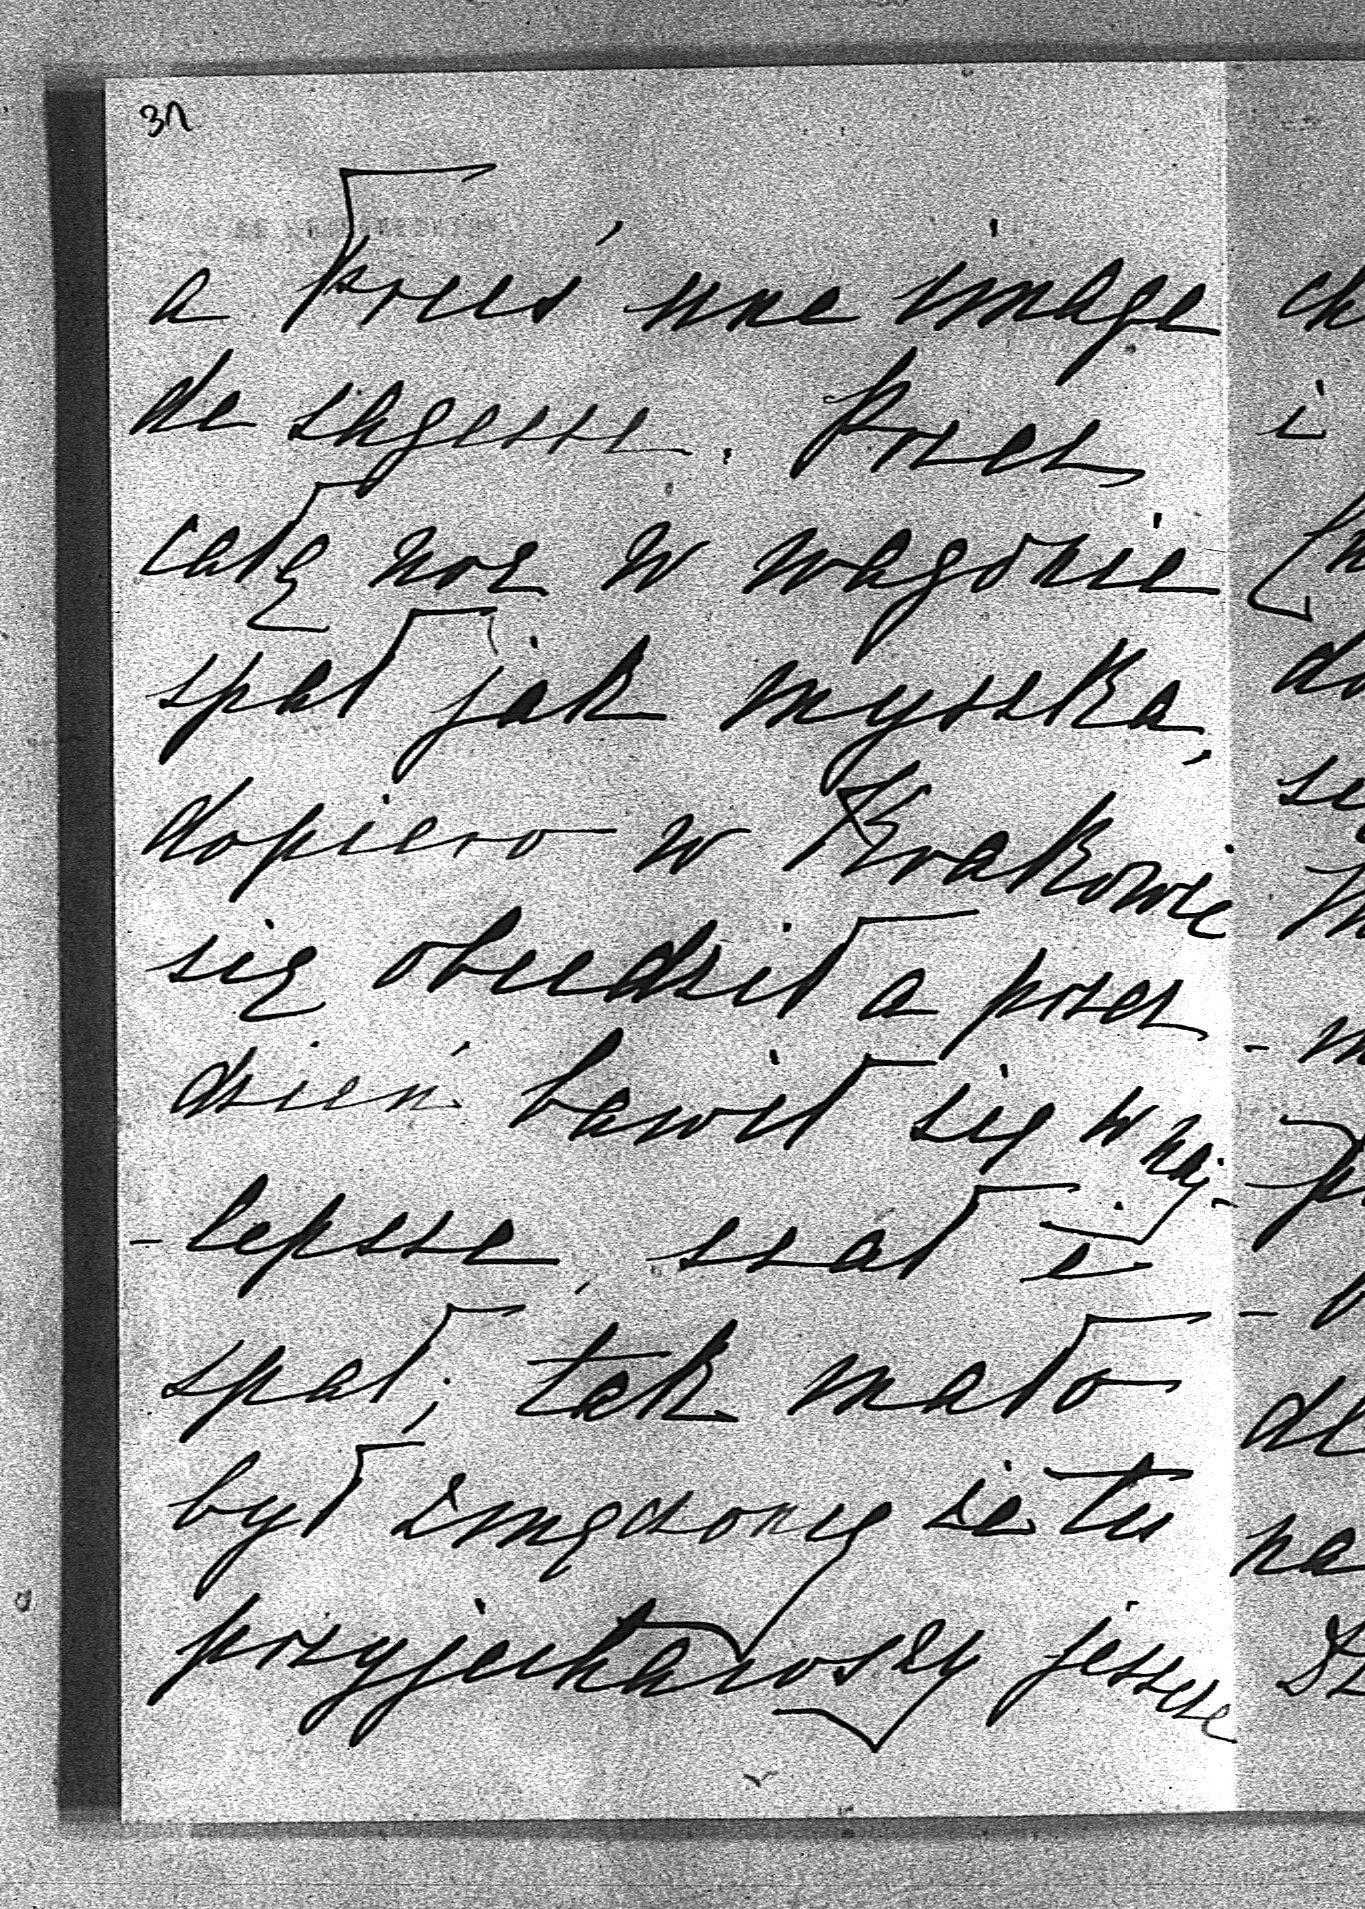 a Krześ une image
de sagesse. Przez
całę noc w wagonie
spał jak myszka,
dopiero w Krakowie
się obudził a przez
dzień bawił się w naj-
-lepsze, ssał i
spał; tak mało
był zmęczony że tu
przyjechawszy jeszcze